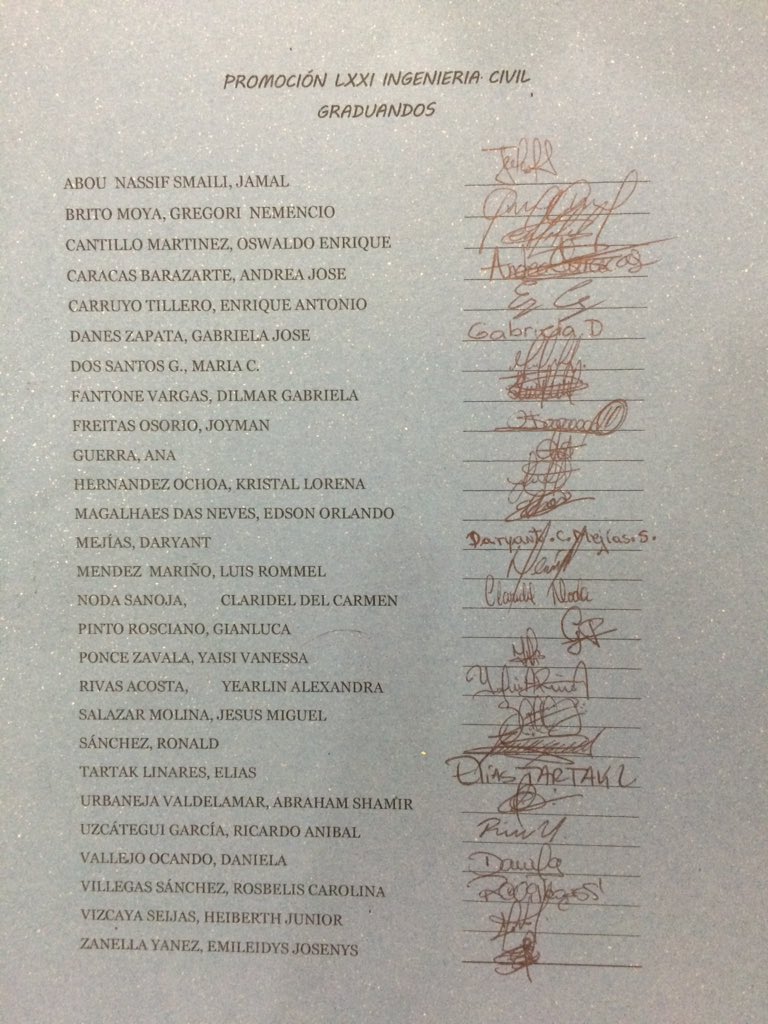 PROMOCIÓN LXXI INGENIERIA CIVIL
GRADUANDOS
ABOU NASSIF SMAILI, JAMAL
BRITO MOYA, GREGORI NEMENCIO
CANTILLO MARTINEZ, OSWALDO ENRIQUE
CARACAS BARAZARTE, ANDREA JOSE
CARRUYO TILLERO, ENRIQUE ANTONIO
DANES ZAPATA, GABRIELA JOSE Gabriela D
DOS SANTOS G., MARIA C.
FANTONE VARGAS, DILMAR GABRIELA
FREITAS OSORIO, JOYMAN
GUERRA, ANA
HERNANDEZ OCHOA, KRISTAL LORENA
MAGALHAES DAS NEVES, EDSON ORLANDO
MEJÍAS, DARYANT Daryant.C.Mejías.S.
MENDEZ MARIÑO, LUIS ROMMEL
NODA SANOJA, CLARIDEL DEL CARMEN Claridel Noda
PINTO ROSCIANO, GIANLUCA
PONCE ZAVALA, YAISI VANESSA
RIVAS ACOSTA, YEARLIN ALEXANDRA
SALAZAR MOLINA, JESUS MIGUEL
SÁNCHEZ, RONALD
TARTAK LINARES, ELIAS ELÍAS TARTAK L
URBANEJA VALDELAMAR, ABRAHAM SHAMIR
UZCÁTEGUI GARCÍA, RICARDO ANIBAL
VALLEJO OCANDO, DANIELA Daniela
VILLEGAS SÁNCHEZ, ROSBELIS CAROLINA
VIZCAYA SEIJAS, HEIBERTH JUNIOR
ZANELLA YANEZ, EMILEIDYS JOSENYS